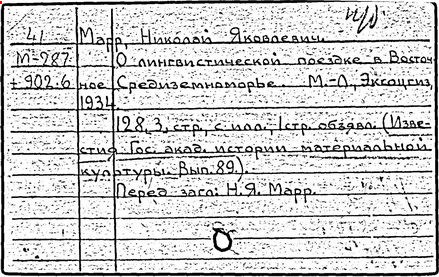 н/о
41 Марр, Николай Яковлевич.
М-287 О лингвистической поездке в Восточ
+902.6 ное Средиземноморье. М.-Л., Эксоцгиз,
1934
128, 3, стр., с илл., 1 стр. объявл. (Изве-
стия Гос. акад. истории материальной
культуры. Вып. 89.).
Перед загл: Н.Я. Марр.